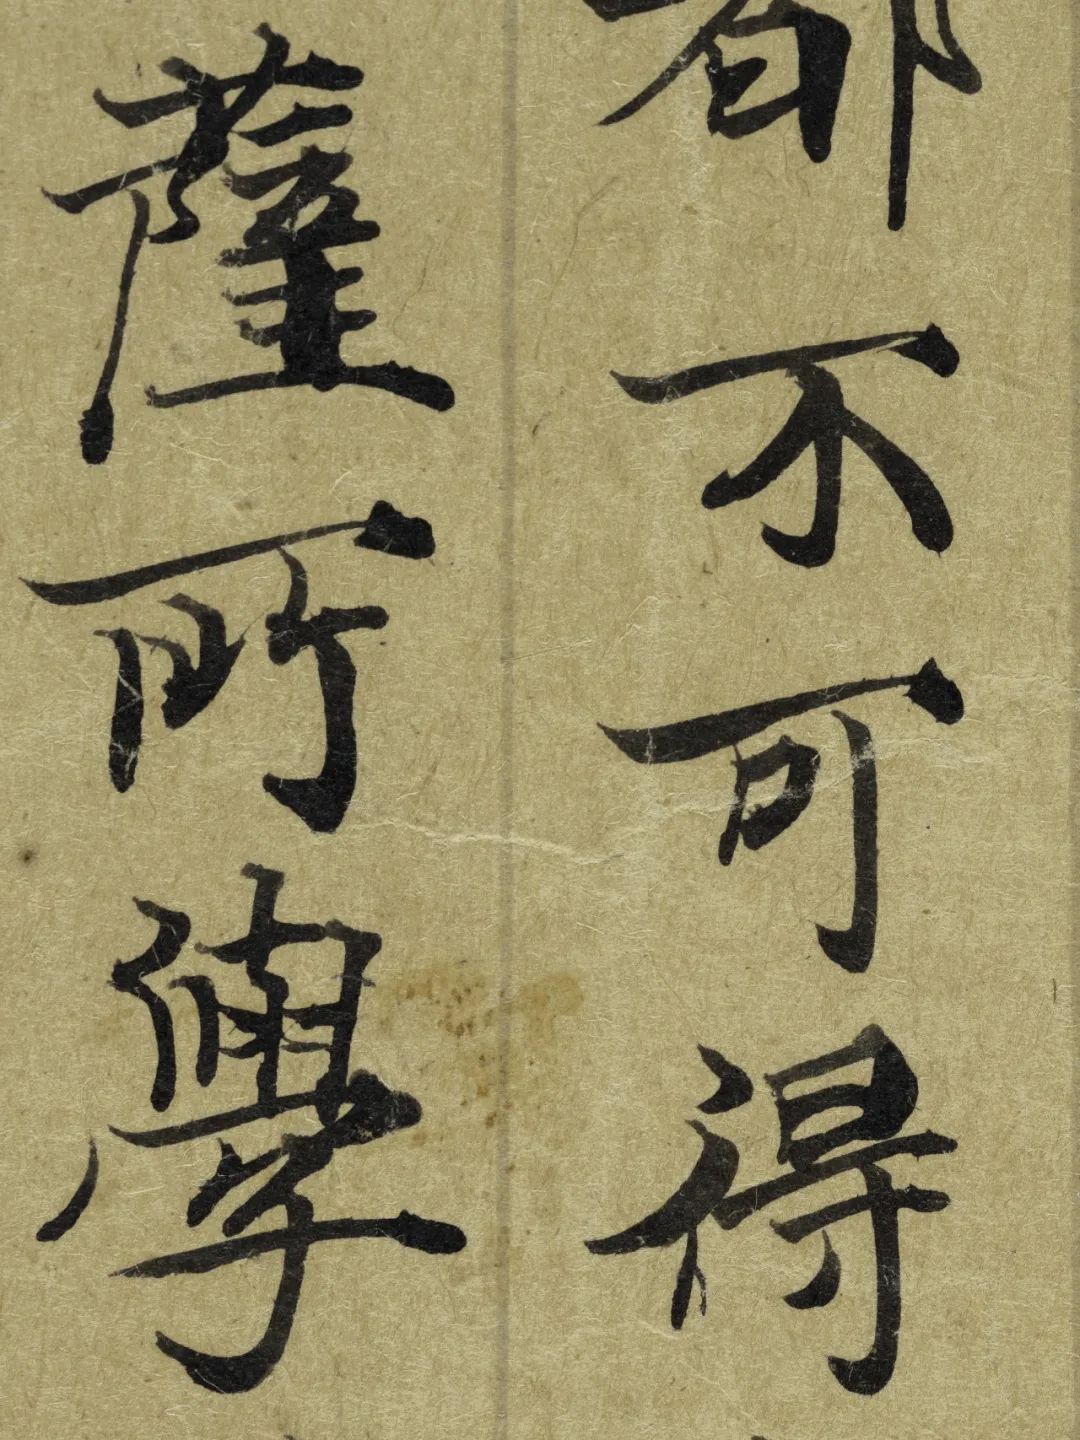 都不可得
薩所學